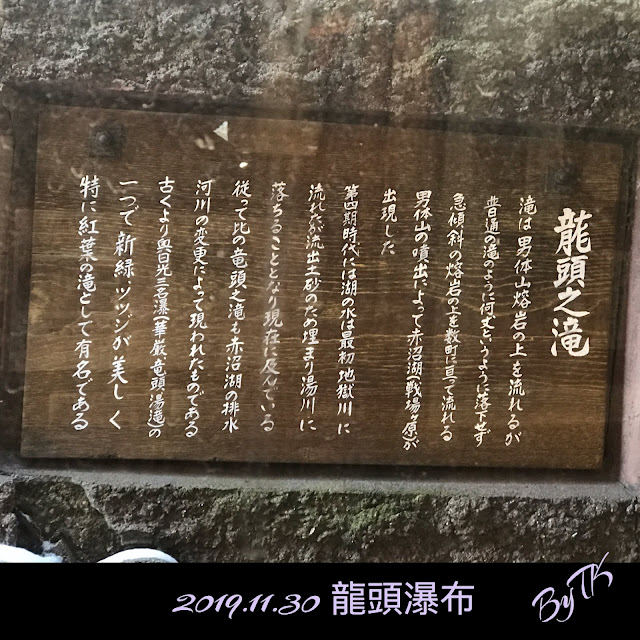 龍頭之滝
滝は男体山熔岩の上を流れるが
普通の滝のように何丈というように落下せず
急傾斜の熔岩の上を数町に亘って流れる
男体山の噴出によって赤沼湖(戦場ヶ原)が
出現した
第四期時代には湖の水は最初地獄川に
流れたが流出土砂のため埋まり湯川に
落ちることとなり現在に及んでいる
従って比の竜頭之滝も赤沼湖の排水
河川の変更によって現われたものである
古くより奥日光三名瀑(華厳竜頭湯滝)の
一つで新緑、ツツジが美しく
特に紅葉の滝として有名である
2019.11.30 龍頭瀑布
By TK